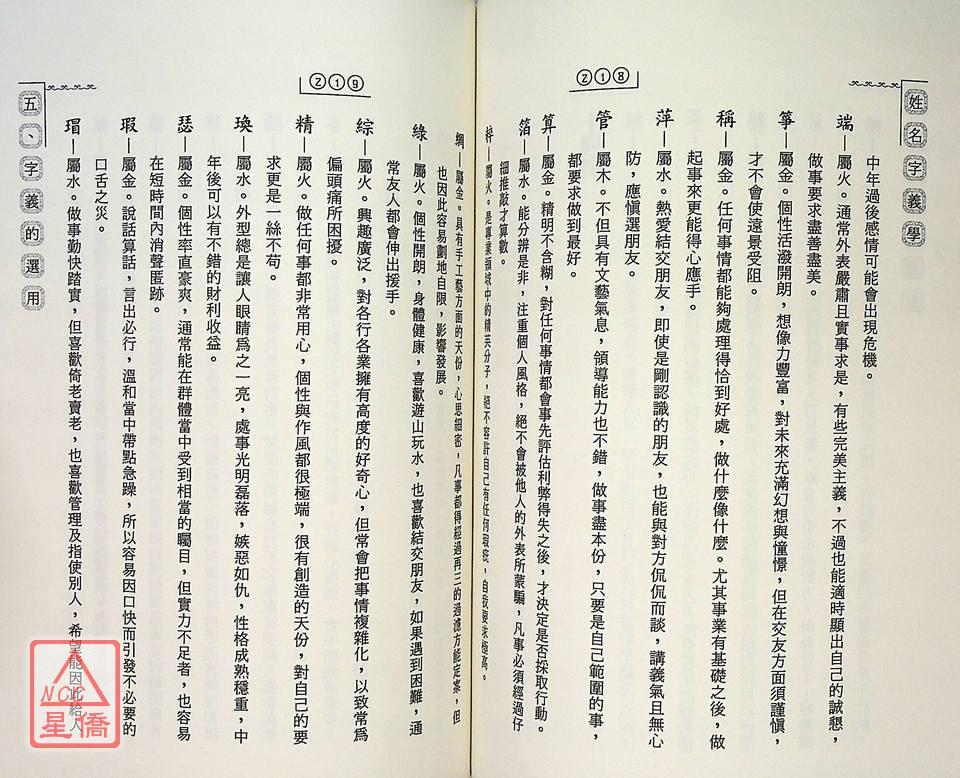 姓名字義學
218
中年過後感情可能會出現危機。
端—屬火。通常外表嚴肅且實事求是，有些完美主義，不過也能適時顯出自己的誠懇，
做事要求盡善盡美。
箏—屬金。個性活潑開朗，想像力豐富，對未來充滿幻想與憧憬，但在交友方面須謹愼，
才不會使遠景受阻。
稱—屬金。任何事情都能夠處理得恰到好處，做什麼像什麼。尤其事業有基礎之後，做
起事來更能得心應手。
萍—屬水。熱愛結交朋友，即使是剛認識的朋友，也能與對方侃侃而談，講義氣且無心
防，應愼選朋友。
管—屬木。不但具有文藝氣息，領導能力也不錯，做事盡本份，只要是自己範圍的事，
都要求做到最好。
算—屬金。精明不含糊，對任何事情都會事先評估利弊得失之後，才決定是否採取行動。
箔—屬水。能分辨是非，注重個人風格，絕不會被他人的外表所蒙騙，凡事必須經過仔
細推敲才算數。
粹—屬火。是專業領域中的精英分子，絕不容許自己有任何瑕疵，自我要求極高。
219
綢—屬金。具有手工藝方面的天份，心思細密，凡事都得經過再三的過濾方能定案，但
也因此容易劃地自限，影響發展。
綠—屬火。個性開朗，身體健康，喜歡遊山玩水，也喜歡結交朋友，如果遇到困難，通
常友人都會伸出援手。
綜—屬火。興趣廣泛，對各行各業擁有高度的好奇心，但常會把事情複雜化，以致常爲
偏頭痛所困擾。
精—屬火。做任何事都非常用心，個性與作風都很極端，很有創造的天份，對自己的要
求更是一絲不苟。
瑍—屬水。外型總是讓人眼睛爲之一亮，處事光明磊落，嫉惡如仇，性格成熟穩重，中
年後可以有不錯的財利收益。
瑟—屬金。個性率直豪爽，通常能在群體當中受到相當的矚目，但實力不足者，也容易
在短時間內消聲匿跡。
瑕—屬金。說話算話，言出必行，溫和當中帶點急躁，所以容易因口快而引發不必要的
口舌之災。
瑁—屬水。做事勤快踏實，但喜歡倚老賣老，也喜歡管理及指使別人，希望能因此給人
五、字義的選用
NCC
星僑